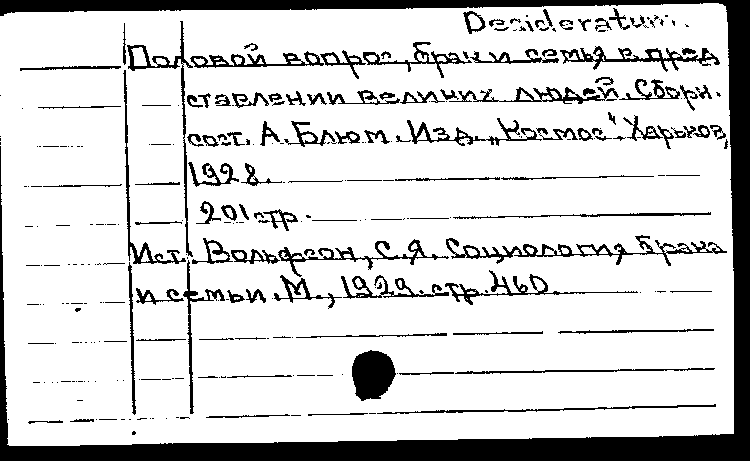 Desideratum.
Половой вопрос, брак и семья в пред
ставлении великих людей. Сборн.
сост. А. Блюм. Изд. „Космос". Харьков,
1928.
201 стр.
Ист.: Вольфсон, С.Я. Социология брака
и семьи. М., 1929. стр. 460.